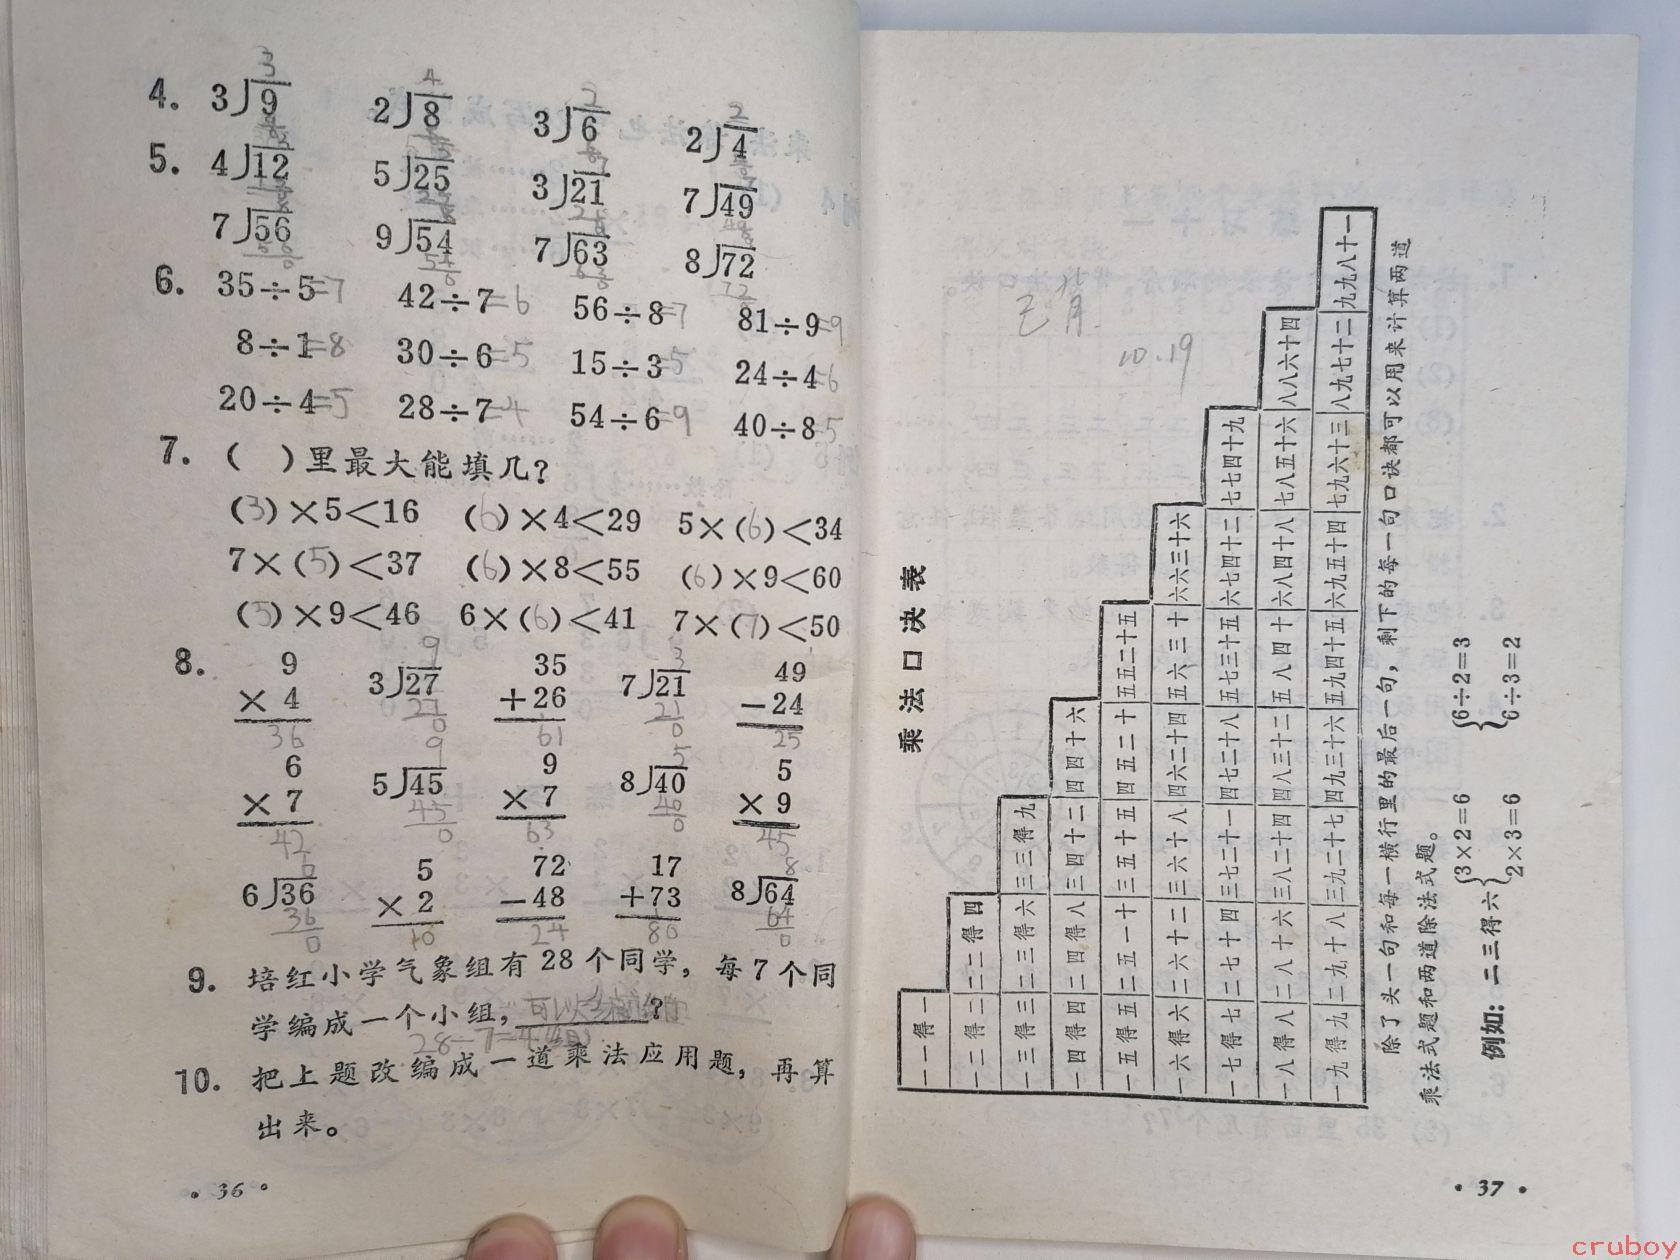 4. 3⟌9 2⟌8 3⟌6 2⟌4
3 4 2 2
5. 4⟌12 5⟌25 3⟌21 7⟌49
7⟌56 9⟌54 7⟌63 8⟌72
6. 35÷5=7 42÷7=6 56÷8=7 81÷9=9
8÷1=8 30÷6=5 15÷3=5 24÷4=6
20÷4=5 28÷7=4 54÷6=9 40÷8=5
7. ( )里最大能填几?
(3)×5<16 (6)×4<29 5×(6)<34
7×(5)<37 (6)×8<55 (6)×9<60
(5)×9<46 6×(6)<41 7×(7)<50
8. 9 × 4 36 3⟌27 9 27 0 35 +26 61 7⟌21 3 21 0 49 -24 25
6 × 7 42 5⟌45 9 45 0 9 × 7 63 8⟌40 5 40 0 5 × 9 45
6⟌36 6 36 0 5 × 2 10 72 -48 24 17 +73 80 8⟌64 8 64 0
9. 培红小学气象组有 28 个同学,每 7 个同
学编成一个小组, 可以 ?
28÷7=4
10. 把上题改编成一道乘法应用题,再算
出来。
• 36 •
10.19
乘法口决表
一一得一
一二得二 二二得四
一三得三 二三得六 三三得九
一四得四 二四得八 三四十二 四四十六
一五得五 二五一十 三五十五 四五二十 五五二十五
一六得六 二六十二 三六十八 四六二十四 五六三十 六六三十六
一七得七 二七十四 三七二十一 四七二十八 五七三十五 六七四十二 七七四十九
一八得八 二八十六 三八二十四 四八三十二 五八四十 六八四十八 七八五十六 八八六十四
一九得九 二九十八 三九二十七 四九三十六 五九四十五 六九五十四 七九六十三 八九七十二 九九八十一
除了头一句和每一横行里的最后一句,剩下的每一句口诀都可以用来计算两道
乘法式题和两道除法式题。
例如: 二三得六 {3×2=6 {6÷2=3
2×3=6 6÷3=2
• 37 •
cruboy